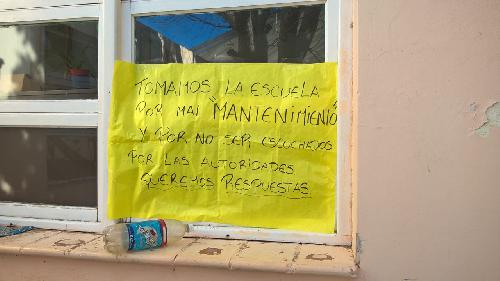 TOMAMOS LA ESCUELA
POR MAL "MANTENIMIENTO"
Y POR NO SER ESCUCHADOS
POR LAS AUTORIDADES
QUEREMOS RESPUESTAS